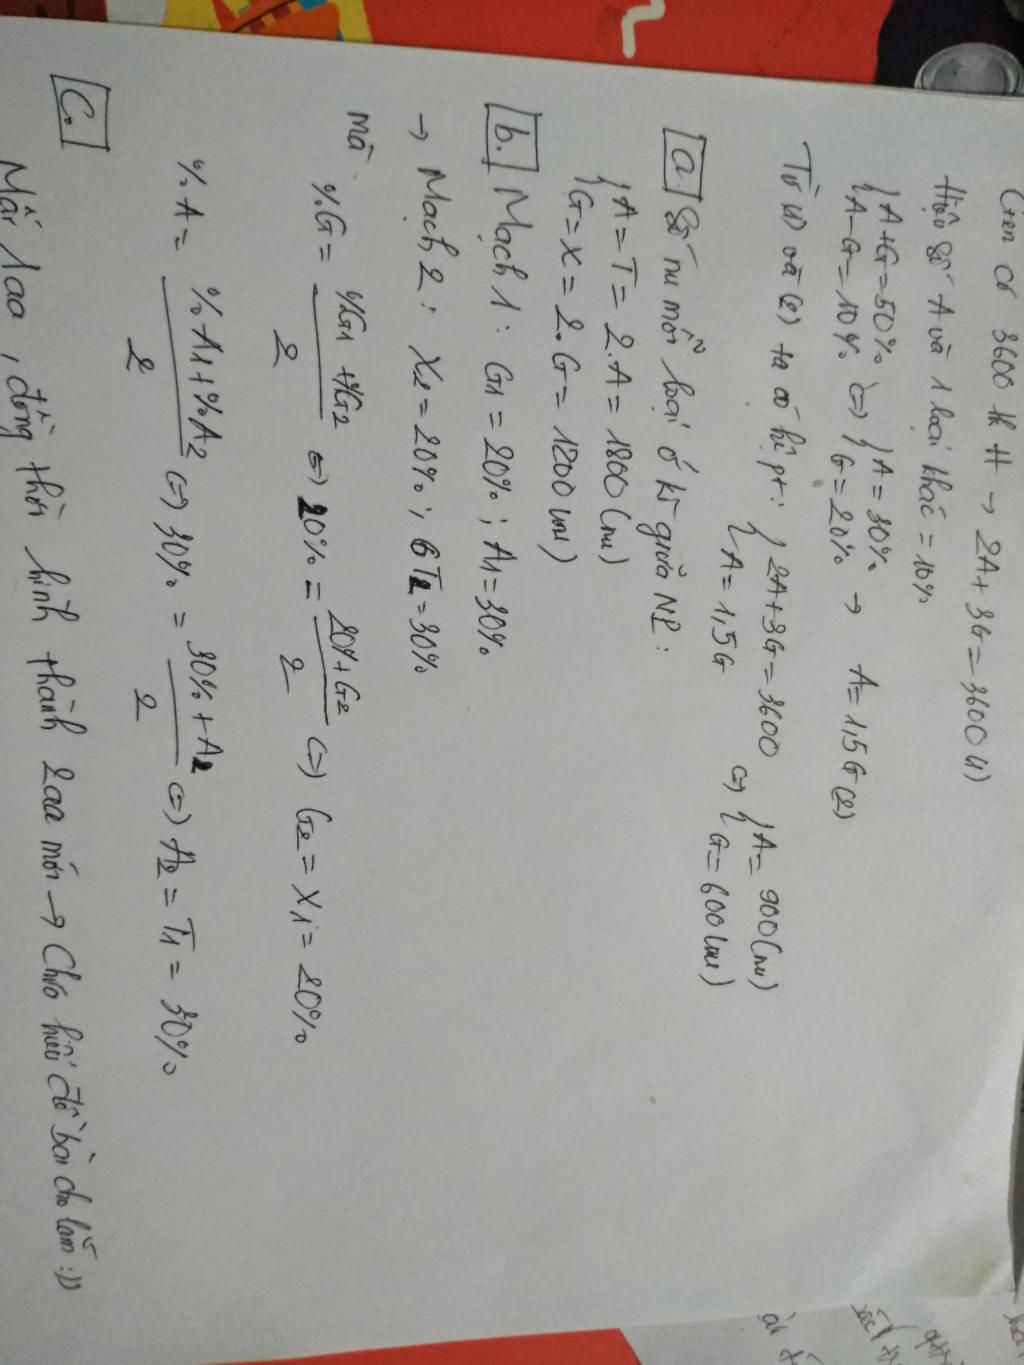 Gen có 3600 lk H → 2A + 3G = 3600 (1)
Hiệu số A và 1 loại khác = 10%
{ A + G = 50%
{ A - G = 10% <=> { A = 30%
{ G = 20% → A = 1,5G (2)
Từ (1) và (2) ta có hệ pt: { 2A + 3G = 3600
{ A = 1,5G <=> { A = 900 (nu)
{ G = 600 (nu)
a. Số nu mỗi loại ở kì giữa NP:
{ A = T = 2.A = 1800 (nu)
{ G = X = 2.G = 1200 (nu)
b. Mạch 1: G1 = 20% ; A1 = 30%
→ Mạch 2: X2 = 20% ; T2 = 30%
mà %G = %G1 + %G2 / 2 <=> 20% = 20% + G2 / 2 <=> G2 = X1 = 20%
%A = %A1 + %A2 / 2 <=> 30% = 30% + A2 / 2 <=> A2 = T1 = 30%
c. Mất 1aa, đồng thời hình thành 2aa mới → Chưa hiểu đề bài cho lắm :))